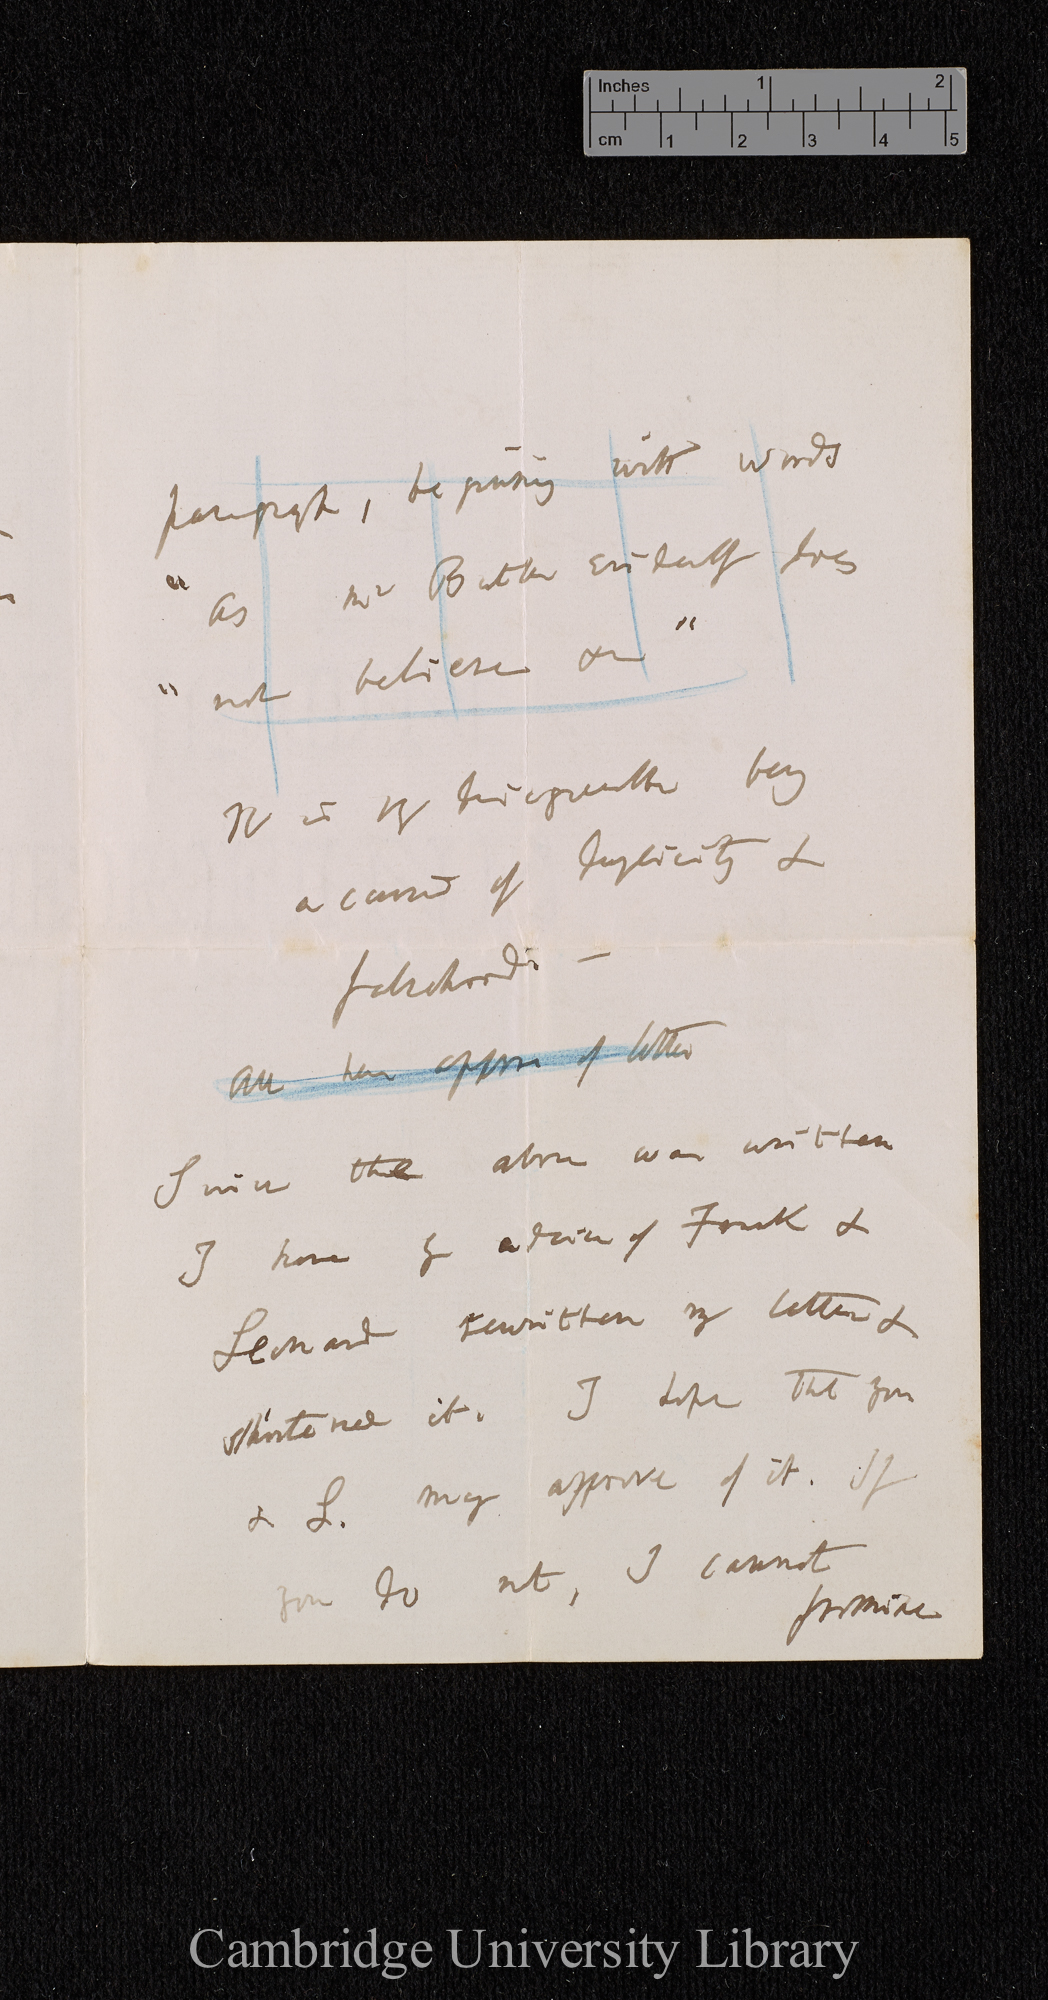 Inches 1 2
cm 1 2 3 4 5
paragraph, beginning with words
"as Mr Butler evidently does
"not believe &c"
It is very disagreeable being
accused of duplicity &
falsehood. —
All here approve of letter
Since the above was written
I have by advice of Frank &
Leonard rewritten my letter &
shortened it. I hope that you
& L. may approve of it. If
you do not, I cannot
promise
Cambridge University Library